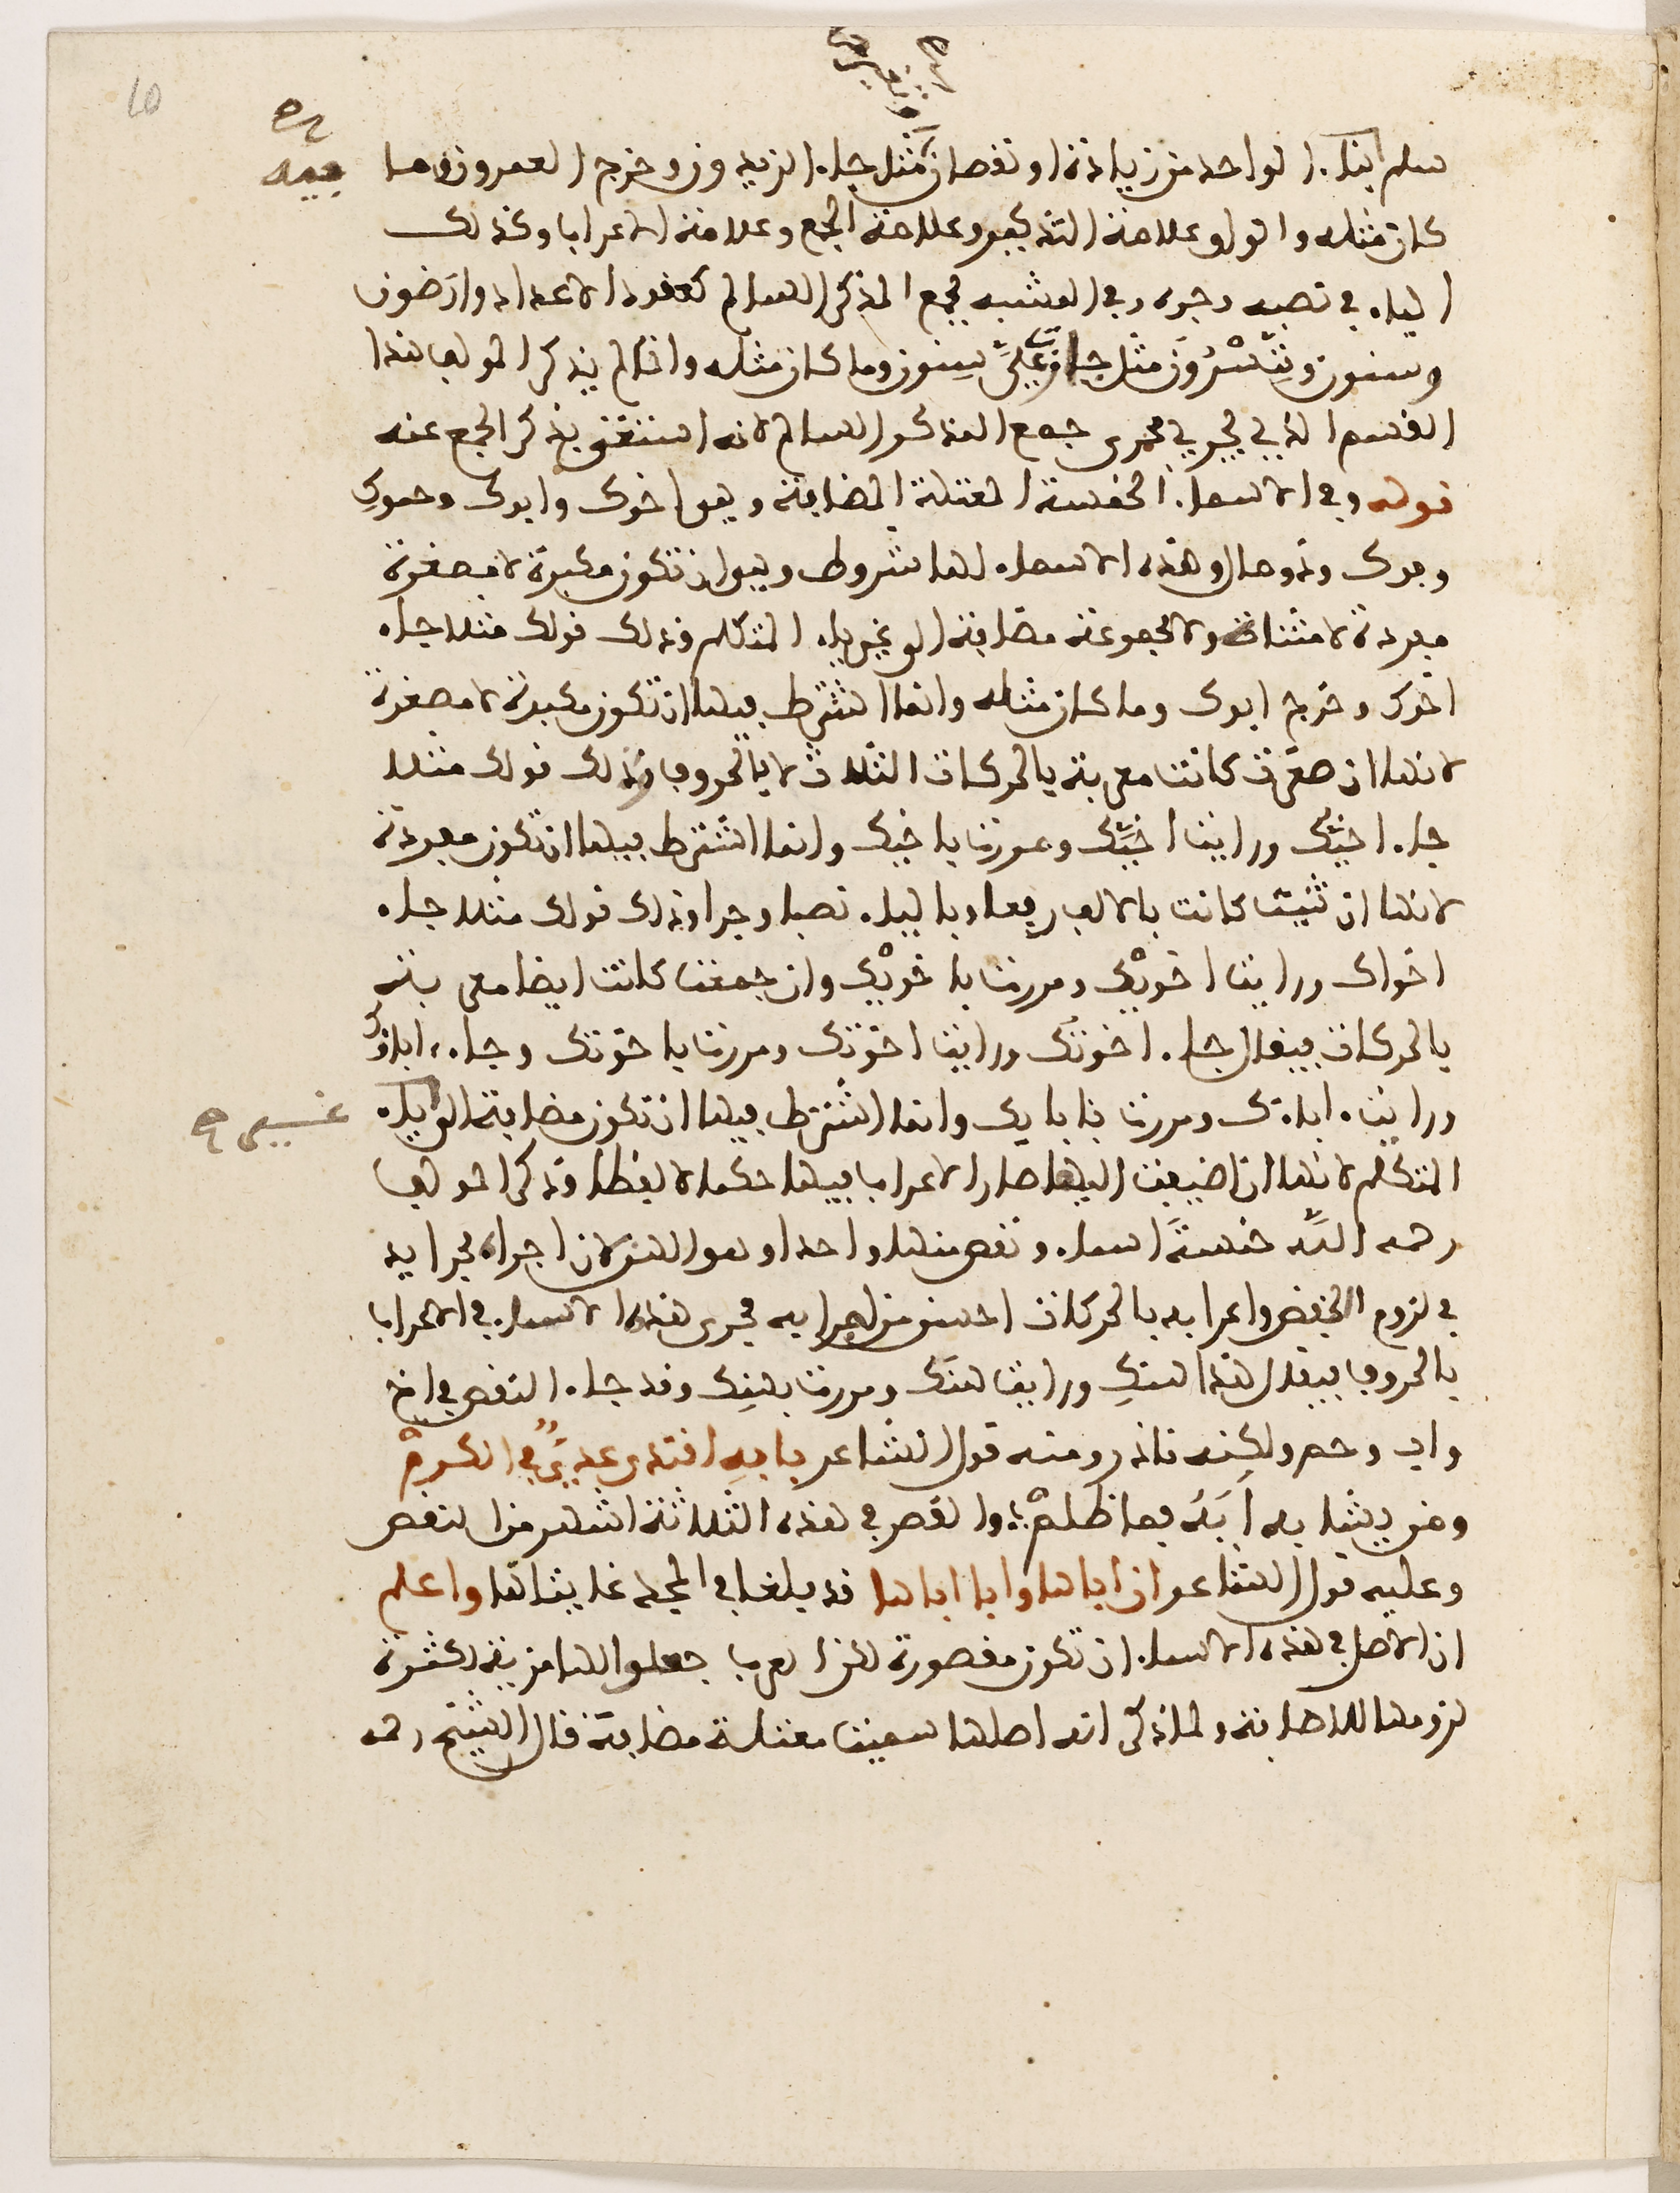 سلم بناء الواحد من زيادة او نقصان مثل جاء الزيدون وخرج العمرون وما
فيه صح
كان مثله والواو علامة التذكير وعلامة الجمع وعلامة الاعراب وكذلك
الياء في نصبه وجره وفي المشبه بجمع المذكر السالم كعقود الاعداد وارَضون
وسنون وعشْرُونَ مثل جاز عَلَيَّ سِنون وما كان مثله وانما لم يذكر المولف هذا
القسم الذي يجري مجرى جمع المذكر السالم لانه استغنى بذكر الجمع عنه
قوله وفي الاسماء الخمسة المعتلة المضافة وهي اخوك وابوك وحموكِ
وفوك وذو مال وهذه الاسماء لها شروط وهي ان تكون مكبرة لا مصغرة
مفردة لا مثناة ولا مجموعة مضافة الى غير ياء المتكلم وذلك قولك مثلا جاء
اخوك وخرج ابوك وما كان مثله وانما اشترط فيها ان تكون مكبرة لا مصغرة
لانها ان صغرت كانت معربة بالحركات الثلاث لا بالحروف وذلك قولك مثلا
جاء اخَيُّك ورايت اخَيَّك ومررت باخيِّك وانما اشترط فيها ان تكون مفردة
لانها ان ثنيت كانت بالالف رفعا وبالياء نصبا وجرا وذلك قولك مثلا جاء
اخواك ورايت اخويْك ومررت باخويْك وان جمعت كانت ايضا معربة
بالحركات فيقال جاء اخوتُك ورايت اخوتَك ومررت باخوتِك وجاء اباؤك
ورايت اباءَك ومررت بئابايِك وانما اشترط فيها ان تكون مضافة الى ياء
غير صح
المتكلم لانها ان اضيفت اليها صار الاعراب فيها حكما لا لفظا وذكر المولف
رحمه اللَّه خمسةَ اسماء ونقص منها واحدا وهو الهن لان اجراءه مجرا يد
في لزوم النقص واعرابه بالحركات احسن من اجرايه مجرى هذه الاسماء في الاعراب
بالحروف فيقال هذا هنكِ ورايت هنَك ومررت بهنِك وقد جاء النقص في اخ
واب وحم ولكنه نادر ومنه قول الشاعر بابهِ اقتدى عديٌّ في الكرمْ
ومن يشابه اَبَهُ فما ظلمْ والقصر في هذه الثلاثة اشهر من النقص
وعليه قول الشاعر ان اباها وابا اباها قد بلغا في المجد غايتاها واعلم
ان الاصل في هذه الاسماء ان تكون مقصورة لكن العرب جعلوا لها مزية لكثرة
لزومها للاضافة ولما ذكر انه اصلها سميت معتلة مضافة قال الشيخ رحمه